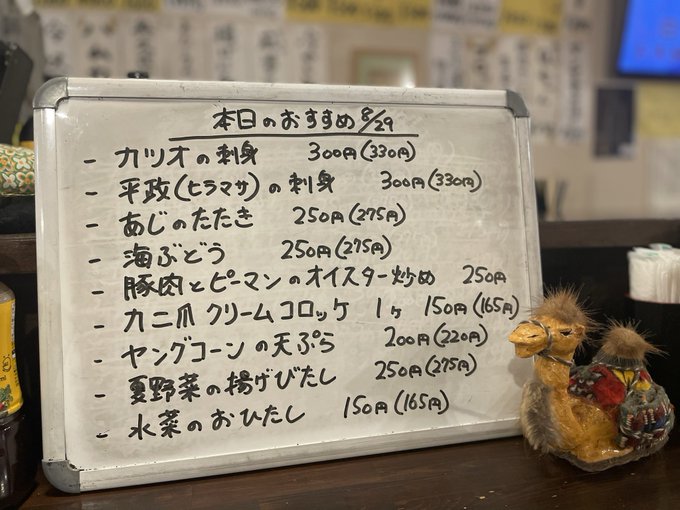 本日のおすすめ 8/29
- カツオの刺身 300円(330円)
- 平政(ヒラマサ)の刺身 300円(330円)
- あじのたたき 250円(275円)
- 海ぶどう 250円(275円)
- 豚肉とピーマンのオイスター炒め 250円
- カニ爪 クリームコロッケ 1ヶ 150円(165円)
- ヤングコーンの天ぷら 200円(220円)
- 夏野菜の揚げびたし 250円(275円)
- 水菜のおひたし 150円(165円)